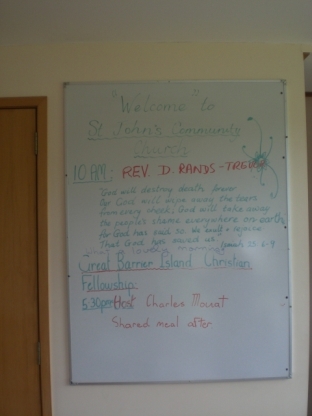 "Welcome" to
St John's Community
Church
10 AM: REV. D. RANDS-
"God will destroy death forever
God will wipe away the tears
from every cheek. God will take away
the people's shame everywhere on earth
for God has said so. We exult & rejoice
that God has saved us. Isaiah 25 6-9
Great Barrier Island Christian
Fellowship
5:30pm Host Charles Mowat
Shared meal after